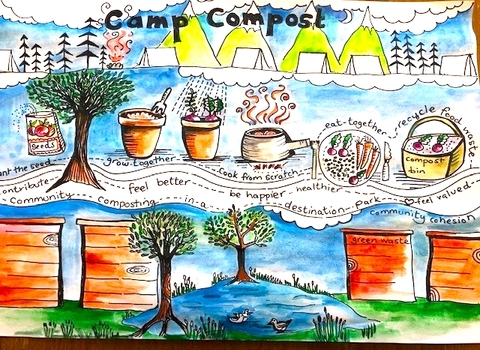 Camp Compost
Seeds
ant the seed
grow-together
cook from scratch
eat-together
recycle food waste
compost
bin
contribute
feel better
be happier
healthier
feel valued
community composting in a destination park
community cohesion
green waste